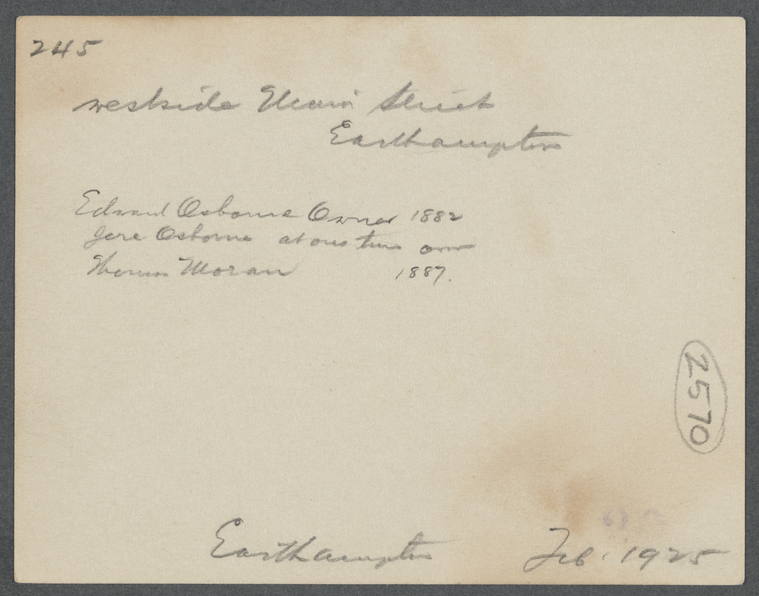 245
westside Main Street
Easthampton
Edward Osborne Owner 1882
Jere Osborne at one time own
Thomas Moran 1887.
2570
Easthampton Feb. 1925